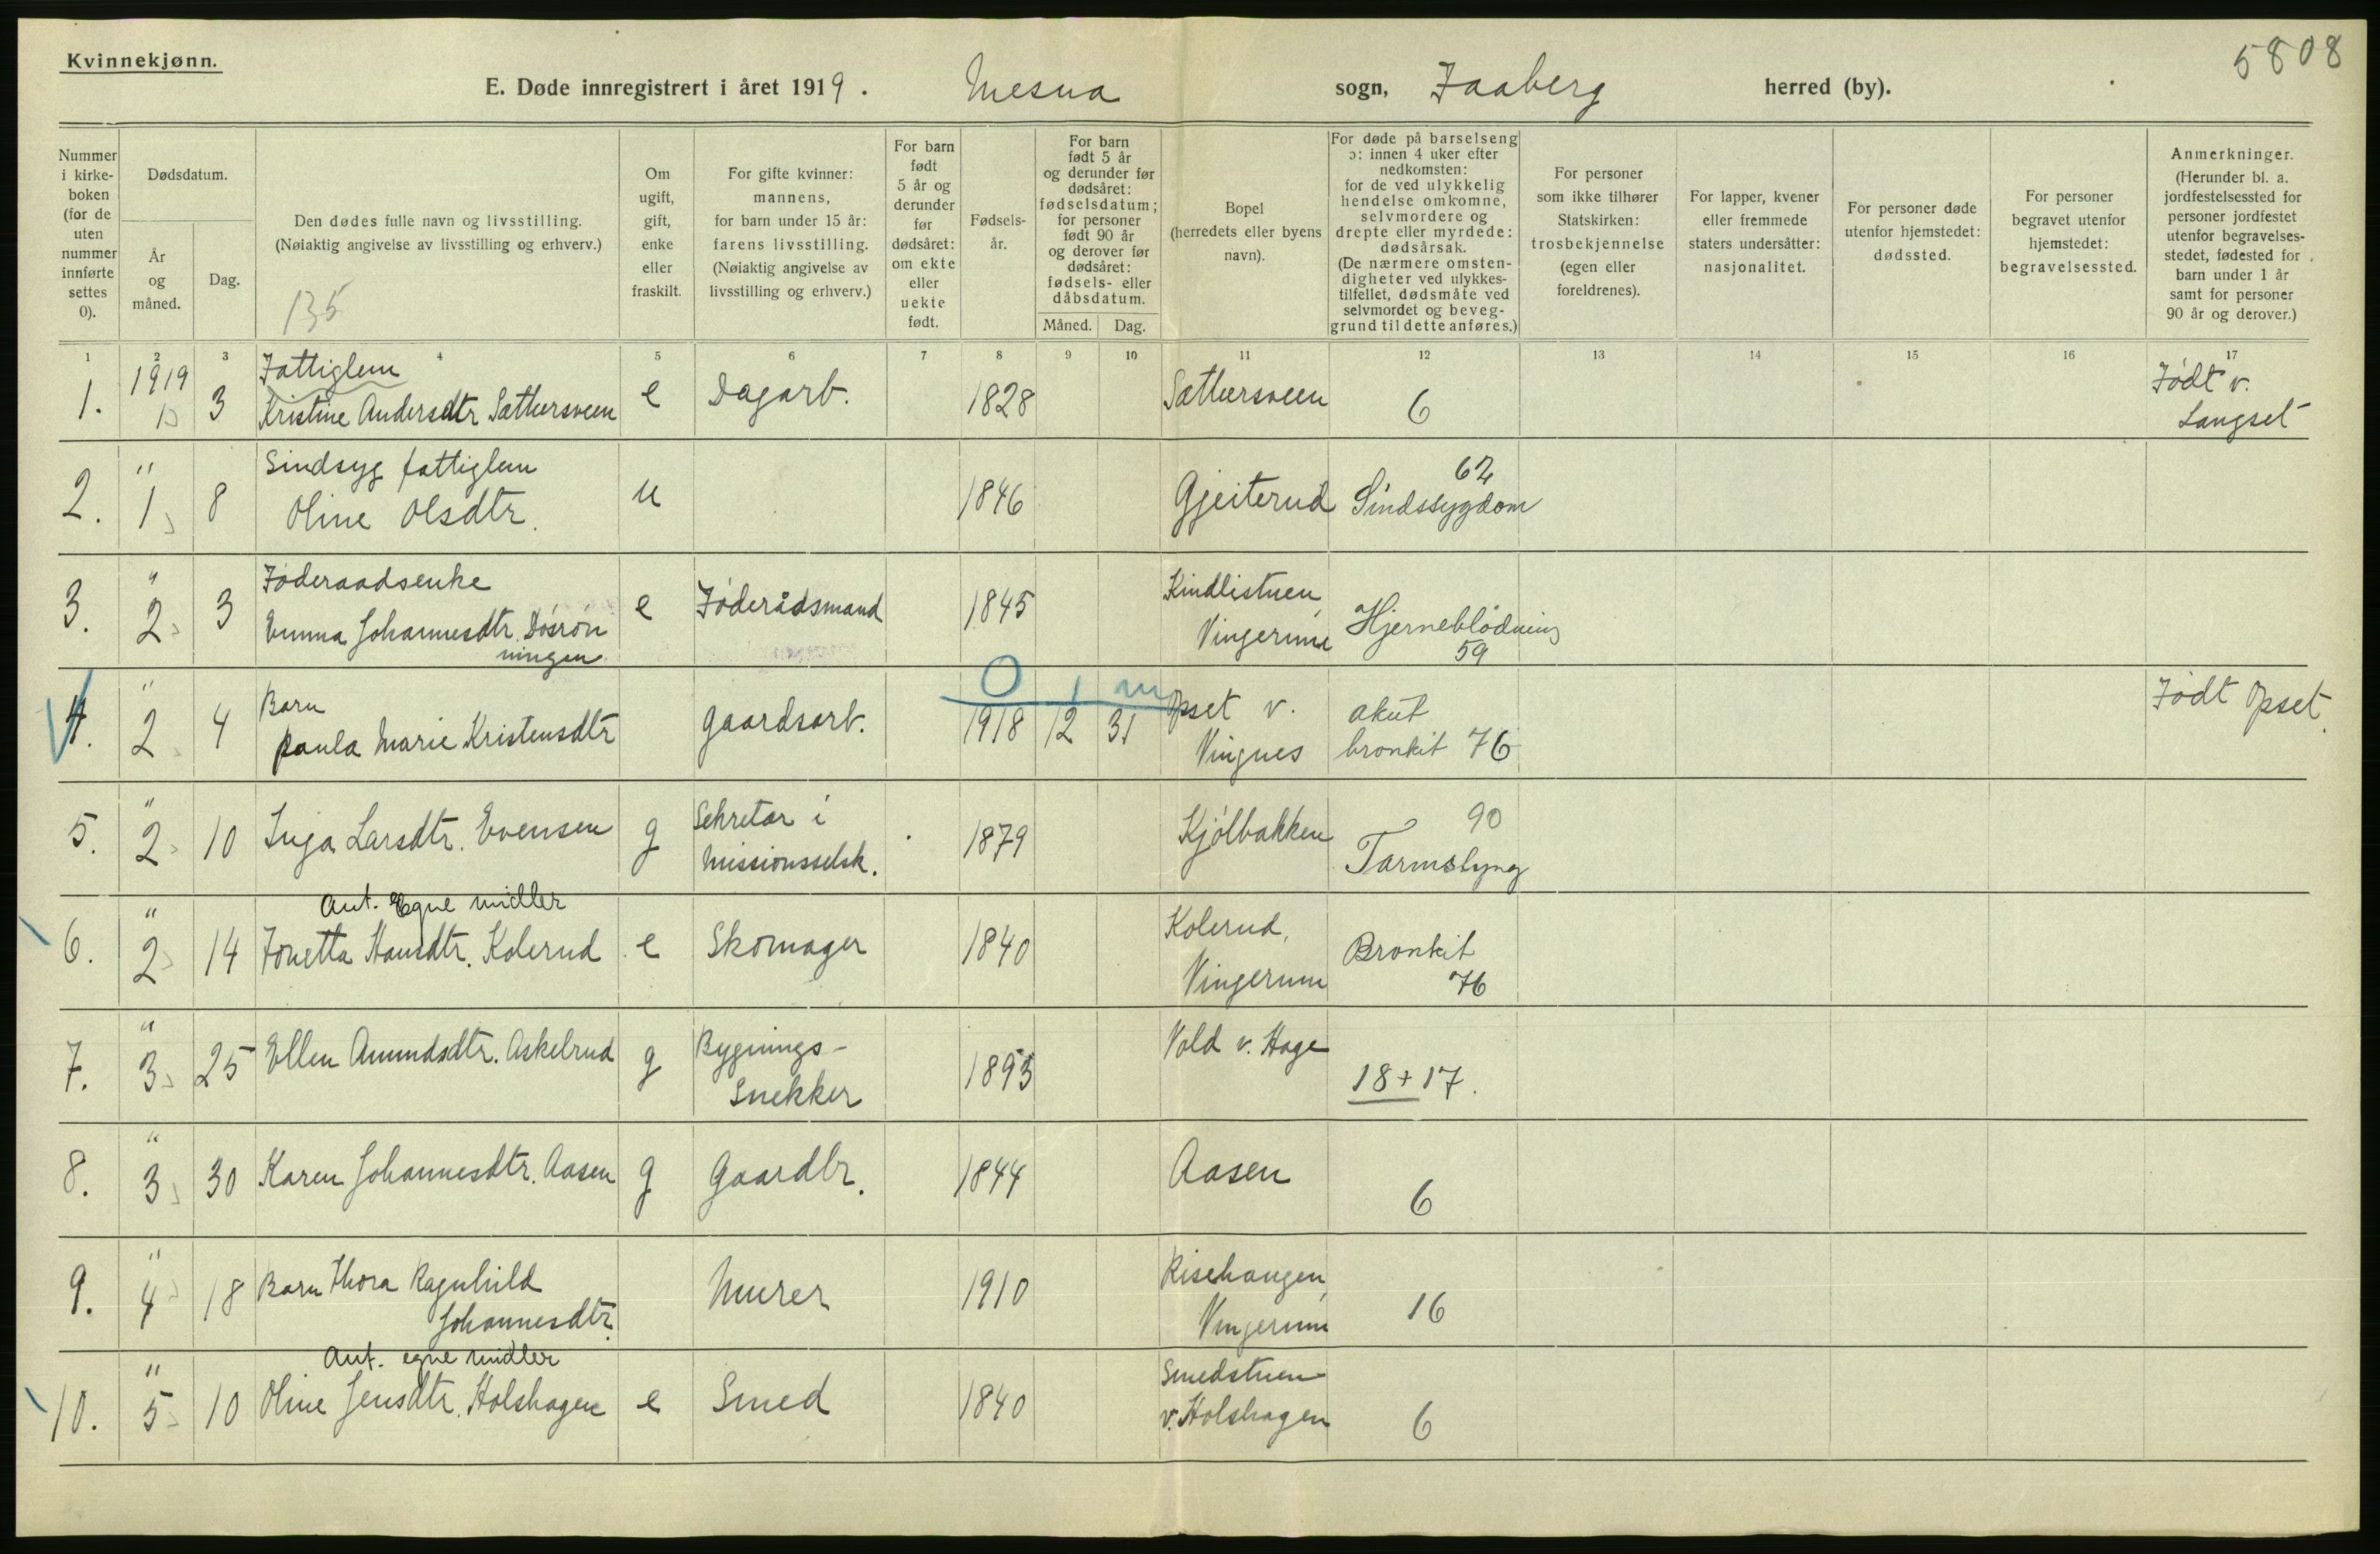 Kvinnekjønn.
5808
E. Døde innregistrert i året 1919. Mesna sogn, Faaberg herred (by).
Nummer i kirkeboken (for de uten nummer innførte settes 0).
Dødsdatum.
År og måned.
Dag.
Den dødes fulle navn og livsstilling.
(Nøiaktig angivelse av livsstilling og erhverv.)
135
Om ugift, gift, enke eller fraskilt.
For gifte kvinner: mannens, for barn under 15 år: farens livsstilling. (Nøiaktig angivelse av livsstilling og erhverv.)
For barn født 5 år og derunder før dødsåret: om ekte eller uekte født.
Fødselsår.
For barn født 5 år og derunder før dødsåret: fødselsdatum; for personer født 90 år og derover før dødsåret: fødsels- eller dåbsdatum.
Måned. Dag.
Bopel (herredets eller byens navn).
For døde på barselseng ɔ: innen 4 uker efter nedkomsten: for de ved ulykkelig hendelse omkomne, selvmordere og drepte eller myrdede: dødsårsak. (De nærmere omstendigheter ved ulykkestilfellet, dødsmåte ved selvmordet og beveggrund til dette anføres.)
For personer som ikke tilhører Statskirken: trosbekjennelse (egen eller foreldrenes).
For lapper, kvener eller fremmede staters undersåtter: nasjonalitet.
For personer døde utenfor hjemstedet: dødssted.
For personer begravet utenfor hjemstedet: begravelsessted.
Anmerkninger. (Herunder bl. a. jordfestelsessted for personer jordfestet utenfor begravelsesstedet, fødested for barn under 1 år samt for personer 90 år og derover.)
1 2 3 4 5 6 7 8 9 10 11 12 13 14 15 16 17
1. 1919 1 3 Fattiglem Kristine Andersdtr Sæthersveen e Dagarb. 1828 Sæthersveen 6 Født v. Langset
2. " 1 8 Sindsyg fattiglem Oline Olsdtr. u 1846 Gjeiterud 62 Sindssygdom
3. " 2 3 Føderaadsenke Emma Johannesdtr. Døsrønningen e Føderådsmand 1845 Kindlistuen, Vingerum Hjerneblødning 59
0 1 m
4. " 2 4 Barn Paula Marie Kristensdtr gaardsarb. 1918 12 31 Opset v. Vingnes akut bronkit 76 Født Opset.
5. " 2 10 Inga Larsdtr. Evensen g Sekretær i Missionsselsk. 1879 Kjølbakken 90 Tarmslyng
6. " 2 14 Ant. Egne midler Jonetta Hansdtr. Kolerud e Skomager 1840 Kolerud, Vingerum Bronkit 76
7. " 3 25 Ellen Amundsdtr. Askelrud g Bygnings-Snekker 1893 Vold v. Hage 18+17.
8. " 3 30 Karen Johannesdtr. Aasen g Gaardbr. 1844 Aasen 6
9. " 4 18 Barn Thora Ragnhild Johannesdtr. Murer 1910 Risehaugen, Vingerum 16
10. " 5 10 Ant. egne midler Oline Jensdtr. Holshagen e Smed 1840 Smedstuen v. Holshagen 6